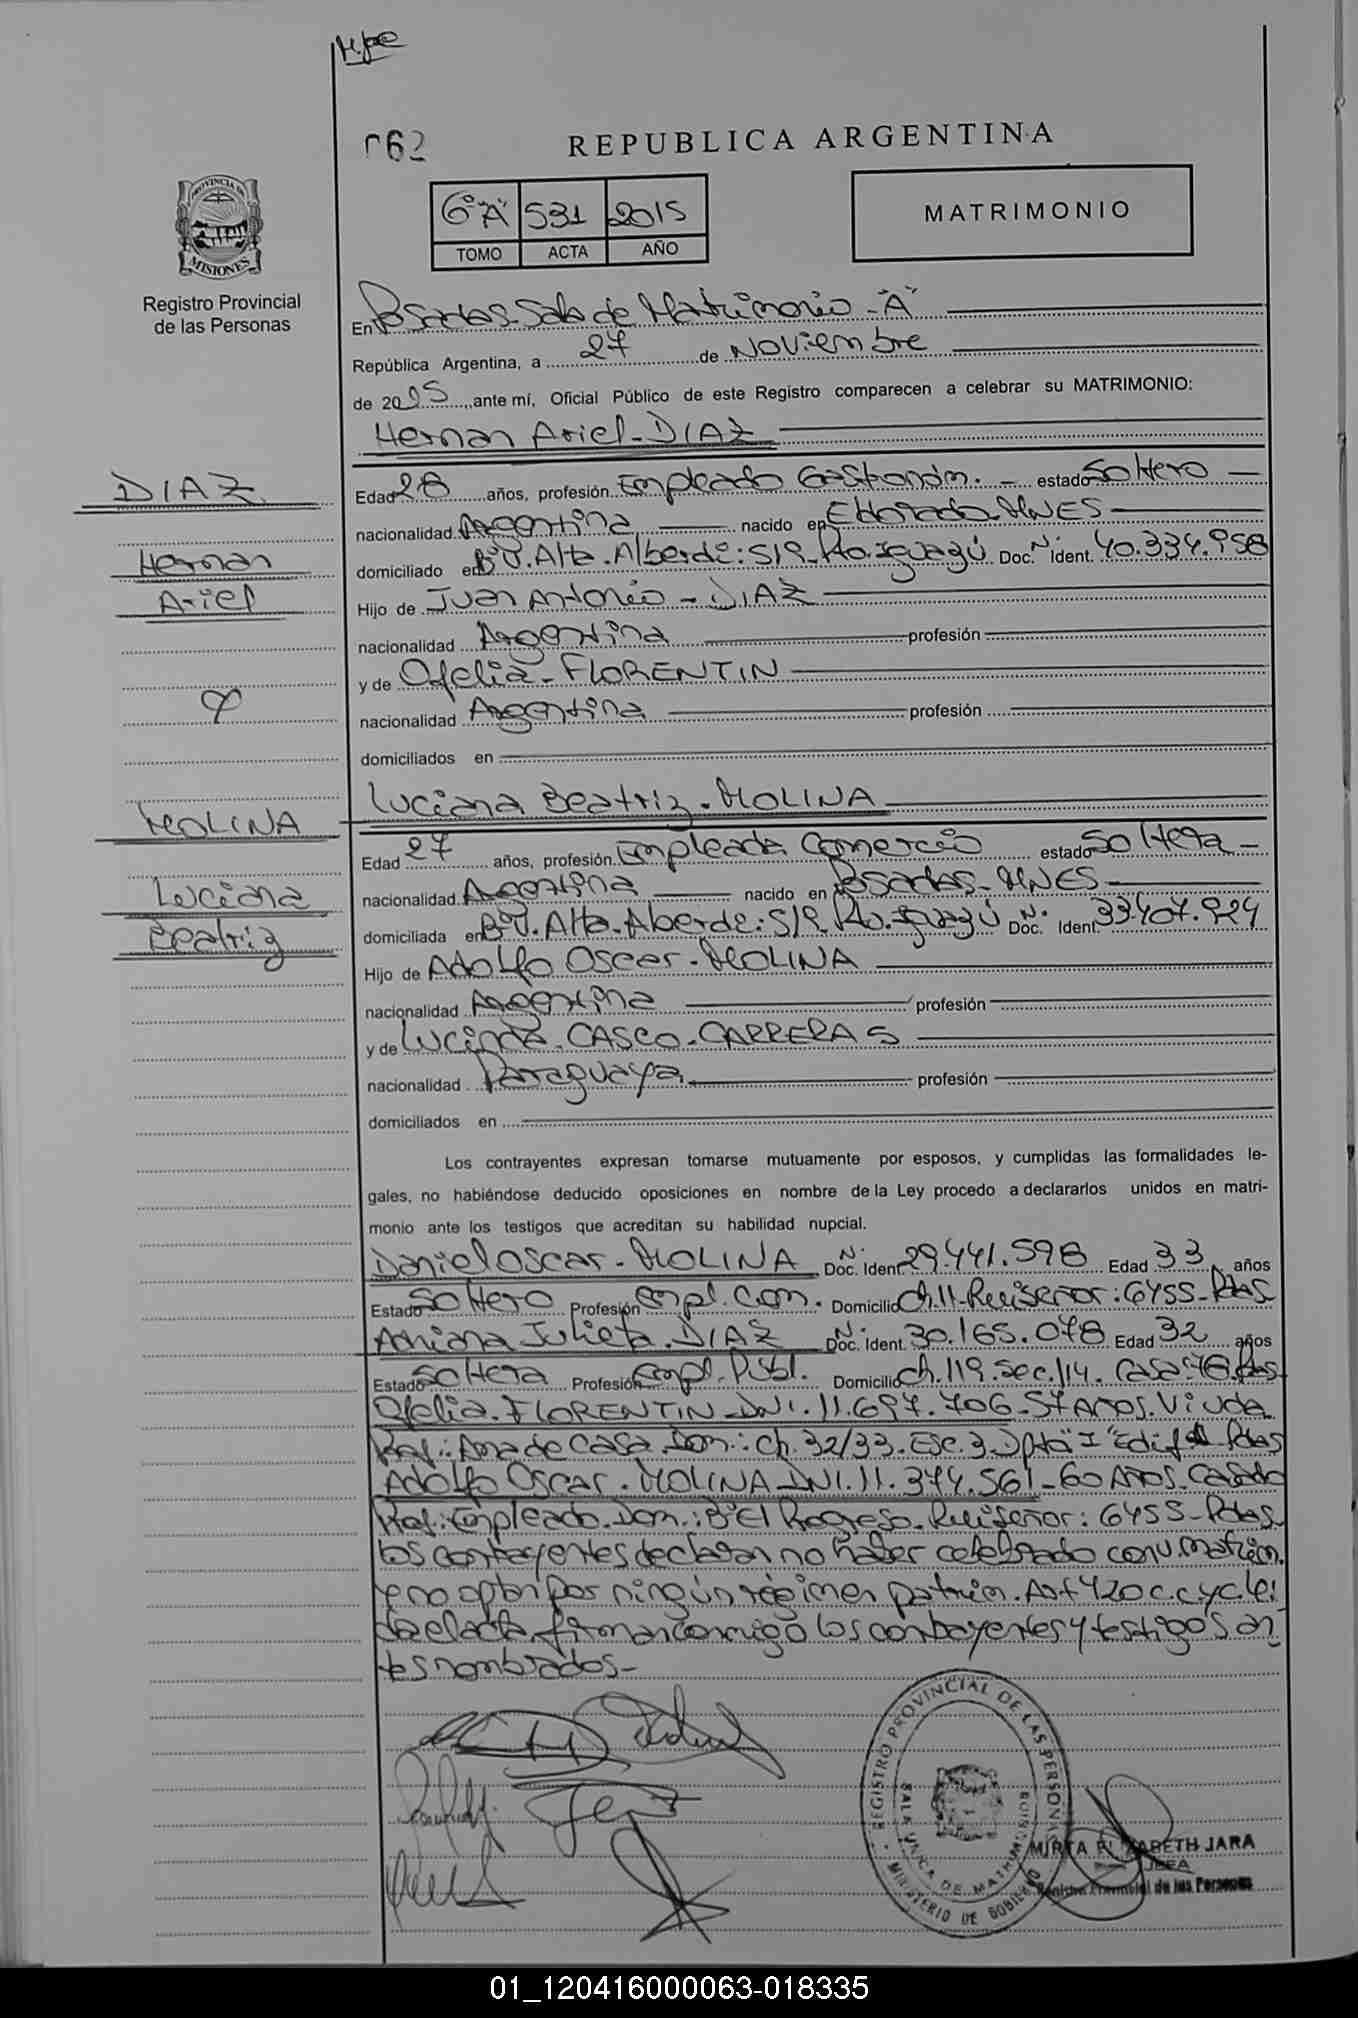 062
REPUBLICA ARGENTINA
6º "A" 531 2015
TOMO ACTA AÑO
MATRIMONIO
PROVINCIA DE
MISIONES
Registro Provincial
de las Personas
En Posadas-Sala de Matrimonio-"A"
República Argentina, a 27 de Noviembre
de 2015, ante mí, Oficial Público de este Registro comparecen a celebrar su MATRIMONIO:
Hernan Ariel-DIAZ
DIAZ
Hernan
Ariel
Edad 28 años, profesión Empleado Gastronóm. - estado Soltero
nacionalidad Argentina nacido en Eldorado-MNES
domiciliado en Bº V. Alta. Alberdi: S/Nº Pto. Iguazú Doc. Nº Ident. 40.334.958
Hijo de Juan Antonio-DIAZ
nacionalidad Argentina profesión
y de Ofelia-FLORENTIN
nacionalidad Argentina profesión
domiciliados en
Luciana Beatriz-MOLINA
MOLINA
Luciana
Beatriz
Edad 27 años, profesión Empleada Comercio estado Soltera
nacionalidad Argentina nacido en Posadas-MNES
domiciliada en Bº V. Alta. Alberdi: S/Nº Pto. Iguazú Doc. Nº Ident. 33.407.924
Hijo de Adolfo Oscar-MOLINA
nacionalidad Argentina profesión
y de Lucinda-CASCO-CARRERAS
nacionalidad Paraguaya profesión
domiciliados en
Los contrayentes expresan tomarse mutuamente por esposos, y cumplidas las formalidades le-
gales, no habiéndose deducido oposiciones en nombre de la Ley procedo a declararlos unidos en matri-
monio ante los testigos que acreditan su habilidad nupcial.
Daniel Oscar-MOLINA Doc. Nº Ident. 29.441.598 Edad 33 años
Estado Soltero Profesión Empl. Com. Domicilio Ch. 11-Ruiseñor: 6455-Pdas
Adriana Julieta-DIAZ Doc. Nº Ident. 30.165.078 Edad 32 años
Estado Soltera Profesión Empl. Públ. Domicilio Ch. 119. Sec. 14. Casa: 78. Pdas
Ofelia-FLORENTIN-DNI. 11.697.706-57 Años. Viuda
Prof.: Ama de Casa. Dom.: Ch. 32/33. Esc. 3. Dpto "I" Edif. Pdas
Adolfo Oscar-MOLINA-DNI. 11.374.561-60 Años. Casado
Prof.: Empleado. Dom.: Bº El Progreso. Ruiseñor: 6455-Pdas
los contrayentes declaran no haber celebrado conv. matrim.
y no optan por ningún régimen patrim. Art 420 C.C. y C. Lei
da el acta, firman conmigo los contrayentes y testigos an
tes nombrados-
REGISTRO PROVINCIAL DE LAS PERSONAS
SALA UNICA DE MATRIMONIOS
MINISTERIO DE GOBIERNO
MIRTA ELIZABETH JARA
JEFA
Registro Provincial de las Personas
01_120416000063-018335